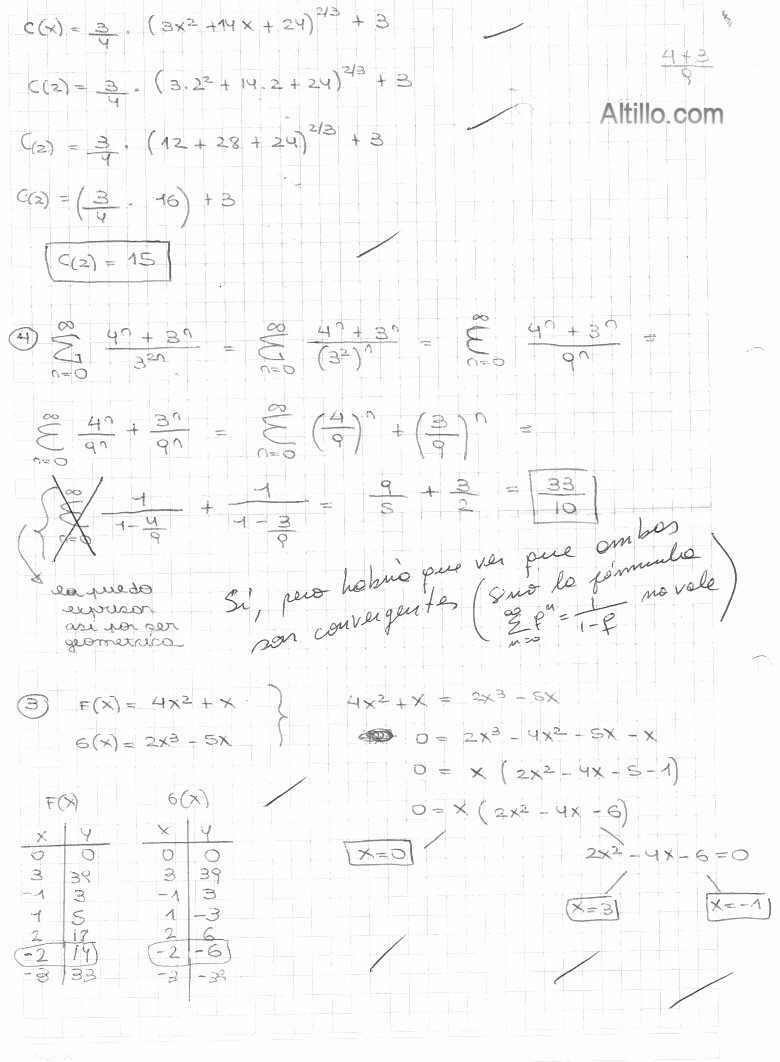 C(x) = 3/4 · (3x² + 14x + 24)^2/3 + 3
4+3/9
C(2) = 3/4 · (3·2² + 14·2 + 24)^2/3 + 3
Altillo.com
C(2) = 3/4 · (12 + 28 + 24)^2/3 + 3
C(2) = (3/4 · 16) + 3
C(2) = 15
④ ∑_{n=0}^{∞} (4ⁿ + 3ⁿ)/3²ⁿ = ∑_{n=0}^{∞} (4ⁿ + 3ⁿ)/(3²)ⁿ = ∑_{n=0}^{∞} (4ⁿ + 3ⁿ)/9ⁿ =
∑_{n=0}^{∞} 4ⁿ/9ⁿ + 3ⁿ/9ⁿ = ∑_{n=0}^{∞} (4/9)ⁿ + (3/9)ⁿ =
∑_{n=0}^{∞} 1/(1 - 4/9) + 1/(1 - 3/9) = 9/5 + 3/2 = 33/10
la puedo
expresar
asi por ser
geometrica
Sí, pero habría que ver que ambas
son convergentes (sinó la fórmula
∑_{n=0}^{∞} q^n = 1/(1-q) no vale)
③ F(x) = 4x² + x
G(x) = 2x³ - 5x
4x² + x = 2x³ - 5x
0 = 2x³ - 4x² - 5x - x
0 = x (2x² - 4x - 5 - 1)
0 = x (2x² - 4x - 6)
x = 0
2x² - 4x - 6 = 0
x = 3
x = -1
F(x)
x y
0 0
3 39
-1 3
1 5
2 18
-2 14
-3 33
G(x)
x y
0 0
3 39
-1 3
1 -3
2 6
-2 -6
-3 -39